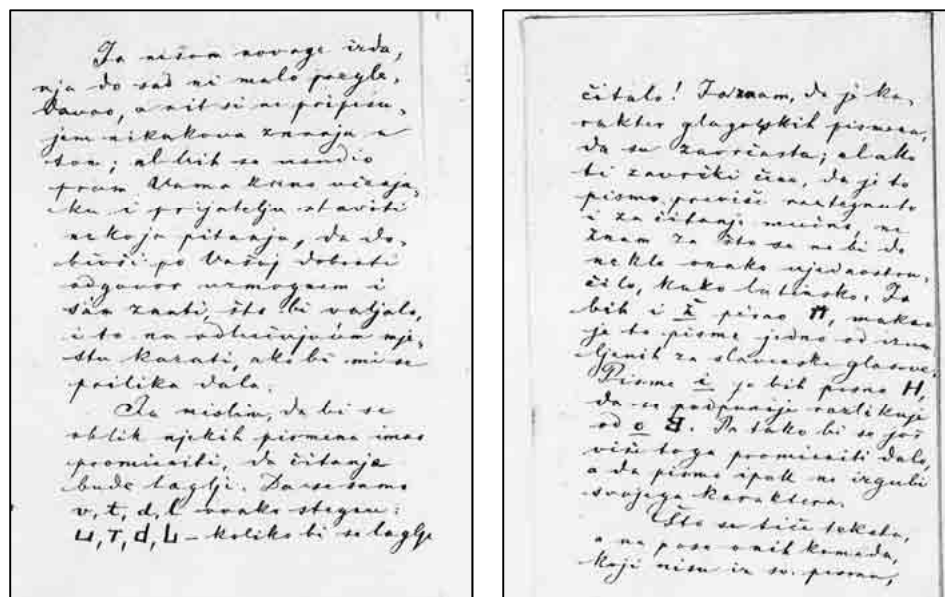 Ja nisam novage izda,
nja do sad ni malo pregle,
davao, a nit si ne pripisu,
jem nikakova znanja u
tom; al bih se usudio
pram Vama kano učenja,
ku i prijatelju staviti
nekoja pitanja, da do,
bivši po Vašoj dobroti
odgovor uzmognem i
sám znati, što bi valjalo,
i to na odlučujućem mje,
stu kazati, ako bi mi se
prilika dala.
Ja mislim, da bi se
oblik njekih pismena imao
promieniti, da čitanje
bude laglje. Da se samo
v, t, d, l ovako stegnu:
ⰲ, т, d, L – koliko bi se laglje
čitalo! Ja znam, da je ka,
rakter glagoljskih pismena,
da su završasta; al ako
ti završki čine, da je to
pismo previše raztegnuto
i za čitanje mučno, ne
znam za što se ne bi do
nekle onako ujednostru,
čilo, kako latinsko. Ja
bih i ž pisao, makar
je to pisme jedno od izum
ljenih za slavenske glasove.
Pisme i ja bih pisao H,
da se podpunije razlikuje
od o. Pa tako bi se još
više toga promieniti dalo,
a da pismo ipak ne izgubi
svojega karaktera.
Što se tiče teksta,
a na pose onih komada,
koji nisu iz sv. pisma,